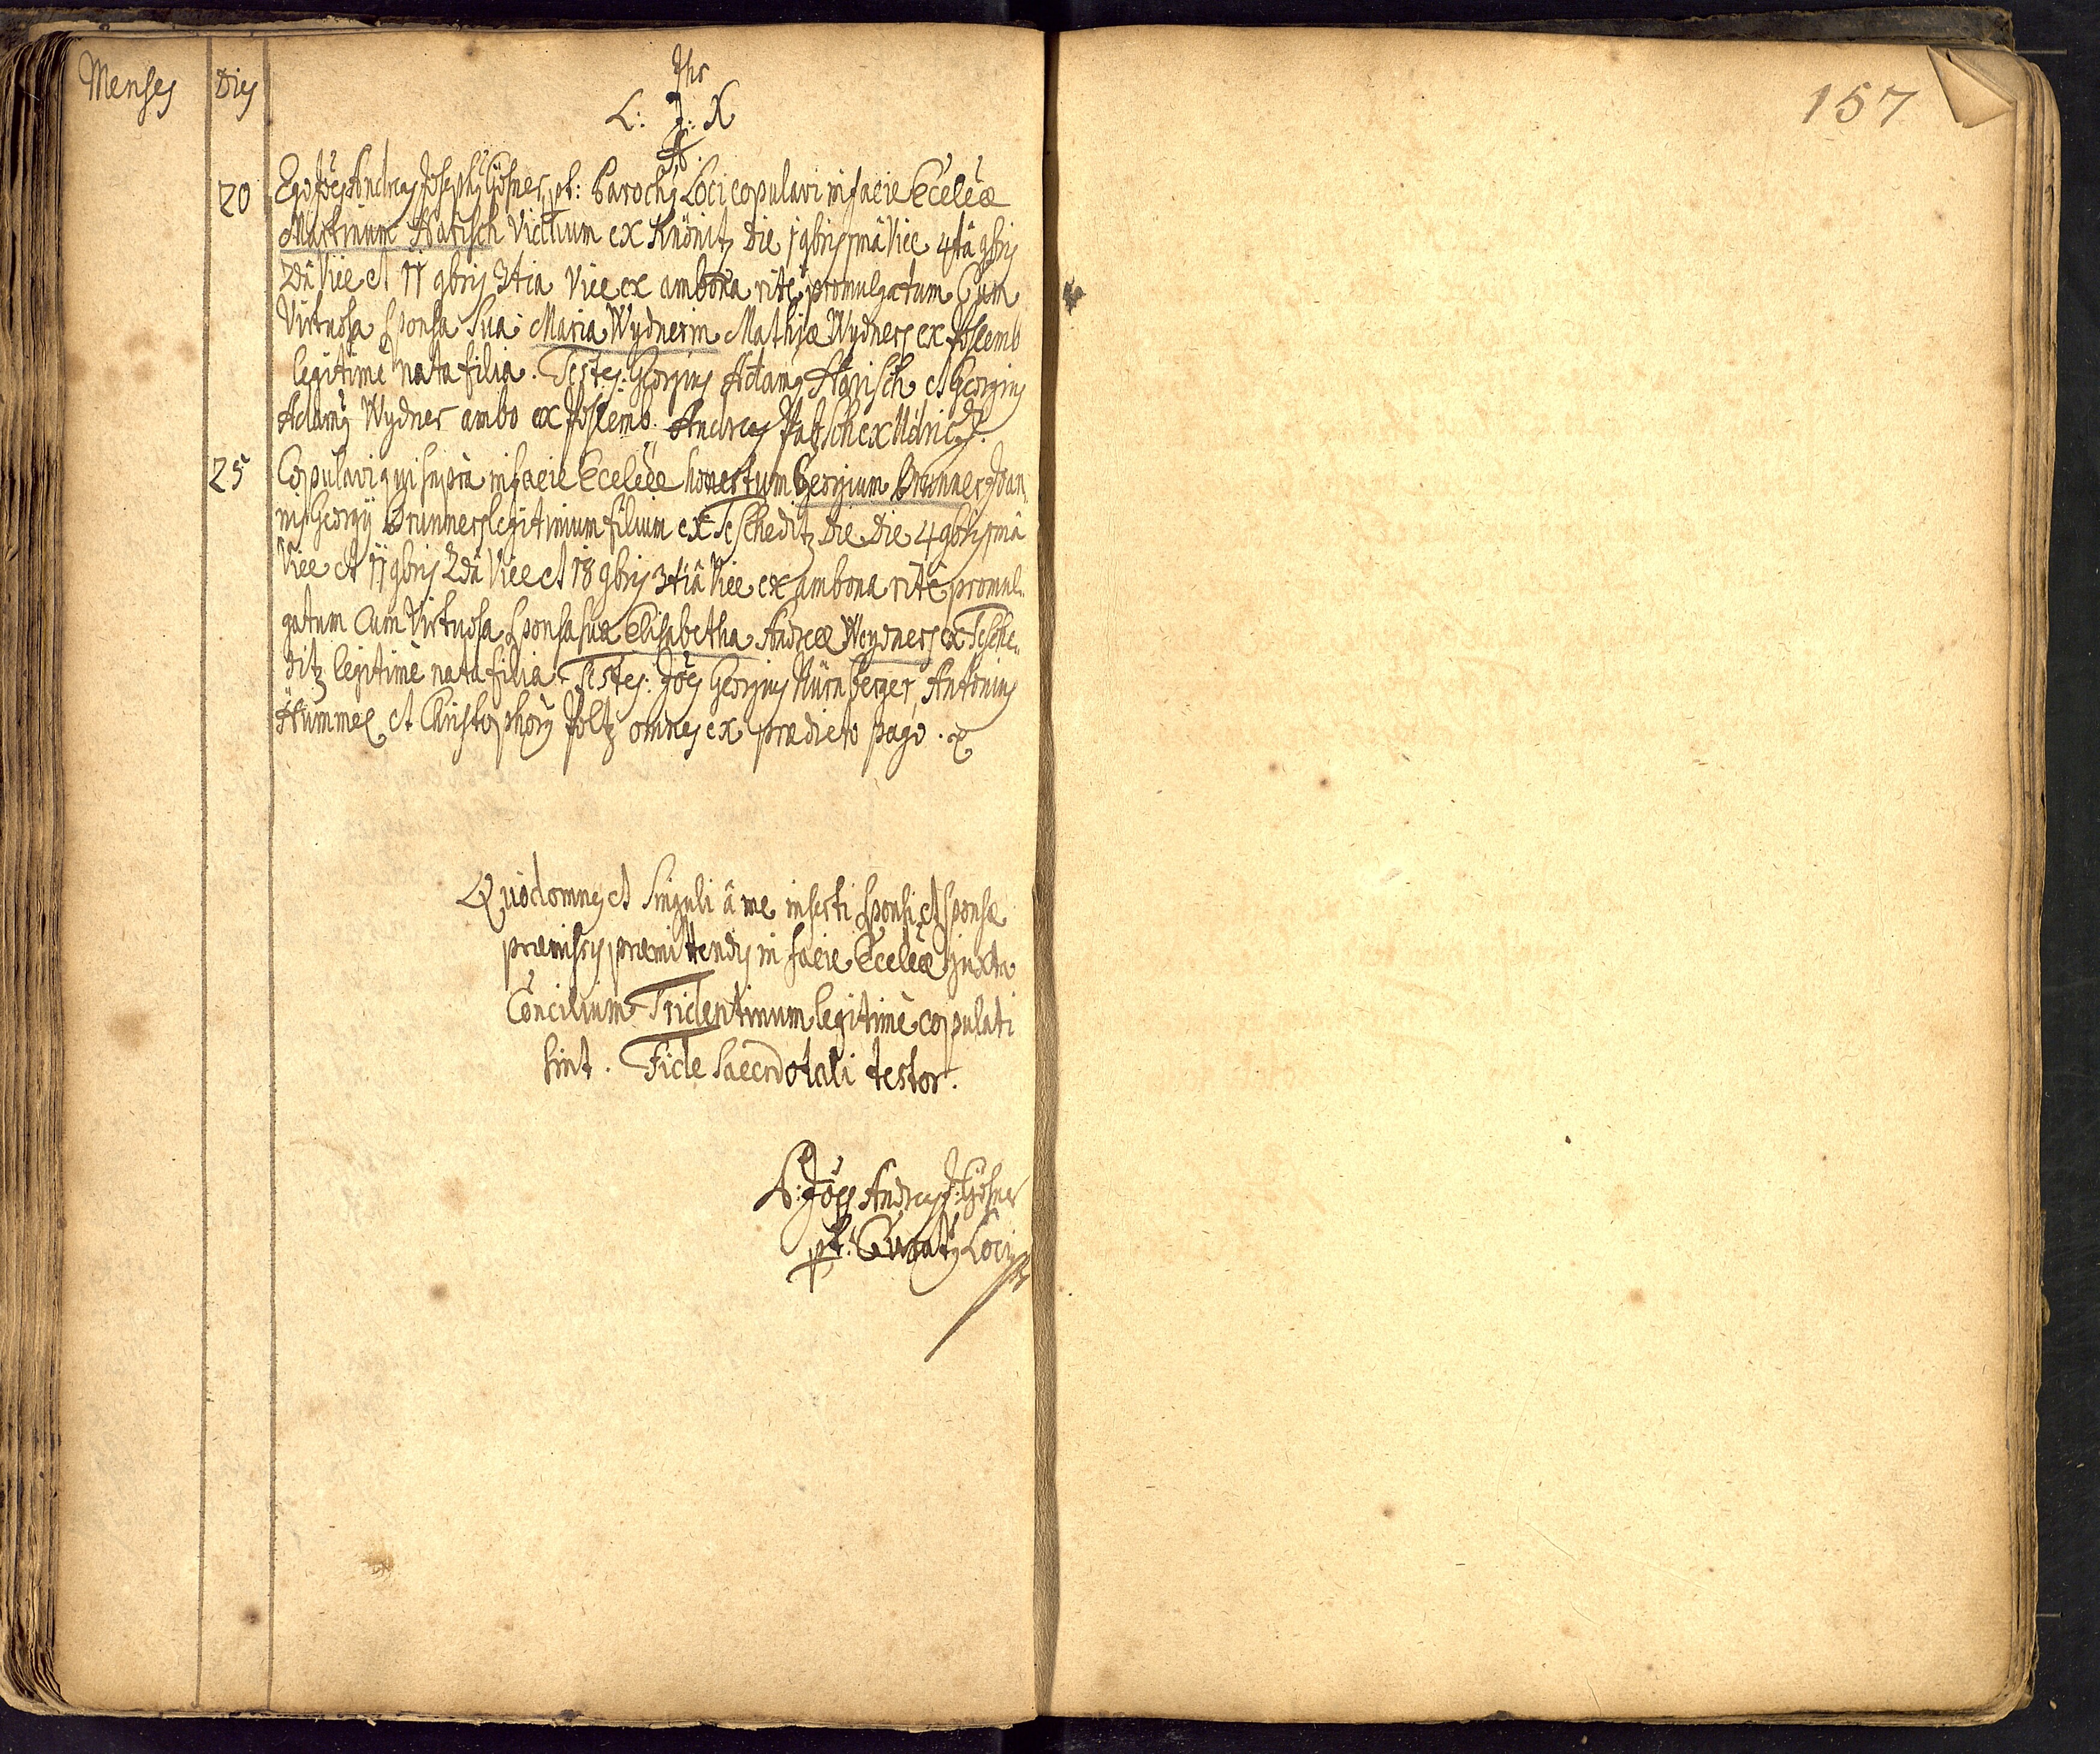 Menses Dies
Jhs
L: J: X
157
20 Ego Joes Andreas Josephg Gösner, pt: Parochg Loci copulavi in facie Eccleæ
Martinum Harisch Viduum ex Knönitz Die 1 9bris 1mâ Vice 4tâ 9bris
2dâ Vice et 11 9bris 3tia Vice ex ambona ritè promulgatum Cum
Virtuosa Sponsa Sua Maria Wydnerin Mathiæ Wydners ex
legitimè nata filia. Testes: Georgius Adamg Harisch et Georgius
Adamg Wydner ambo ex Andreas
25 Copulavi qui supra in facie Eccleæ honestum Georgium Brunner Joan,
nis Georgij Brunners legitimum filium ex Tscheditz Die Die 4 9bris 1mâ
Vice et 11 9bris 2dâ Vice et 18 9bris 3tiâ Vice ex ambona ritè promul,,
gatum Cum Virtuosa Sponsa sua Elisabetha Andreæ Weydners ex Tsche,,
ditz legitimè nata filia. Testes: Joes Georgius Nürnberger, Antonius
Hümmel et Christophorg Poltz omnes ex prædicto pago.
Quòd omnes et Singuli â me inserti Sponsi et Sponsæ
præmissis præmittendis in facie Eccleæ juxta
Concilium Tridentinum legitimè copulati
sint. Fide Sacerdotali testor.
P: Joes Andreas J: Gösner
pt: Curatg Loci